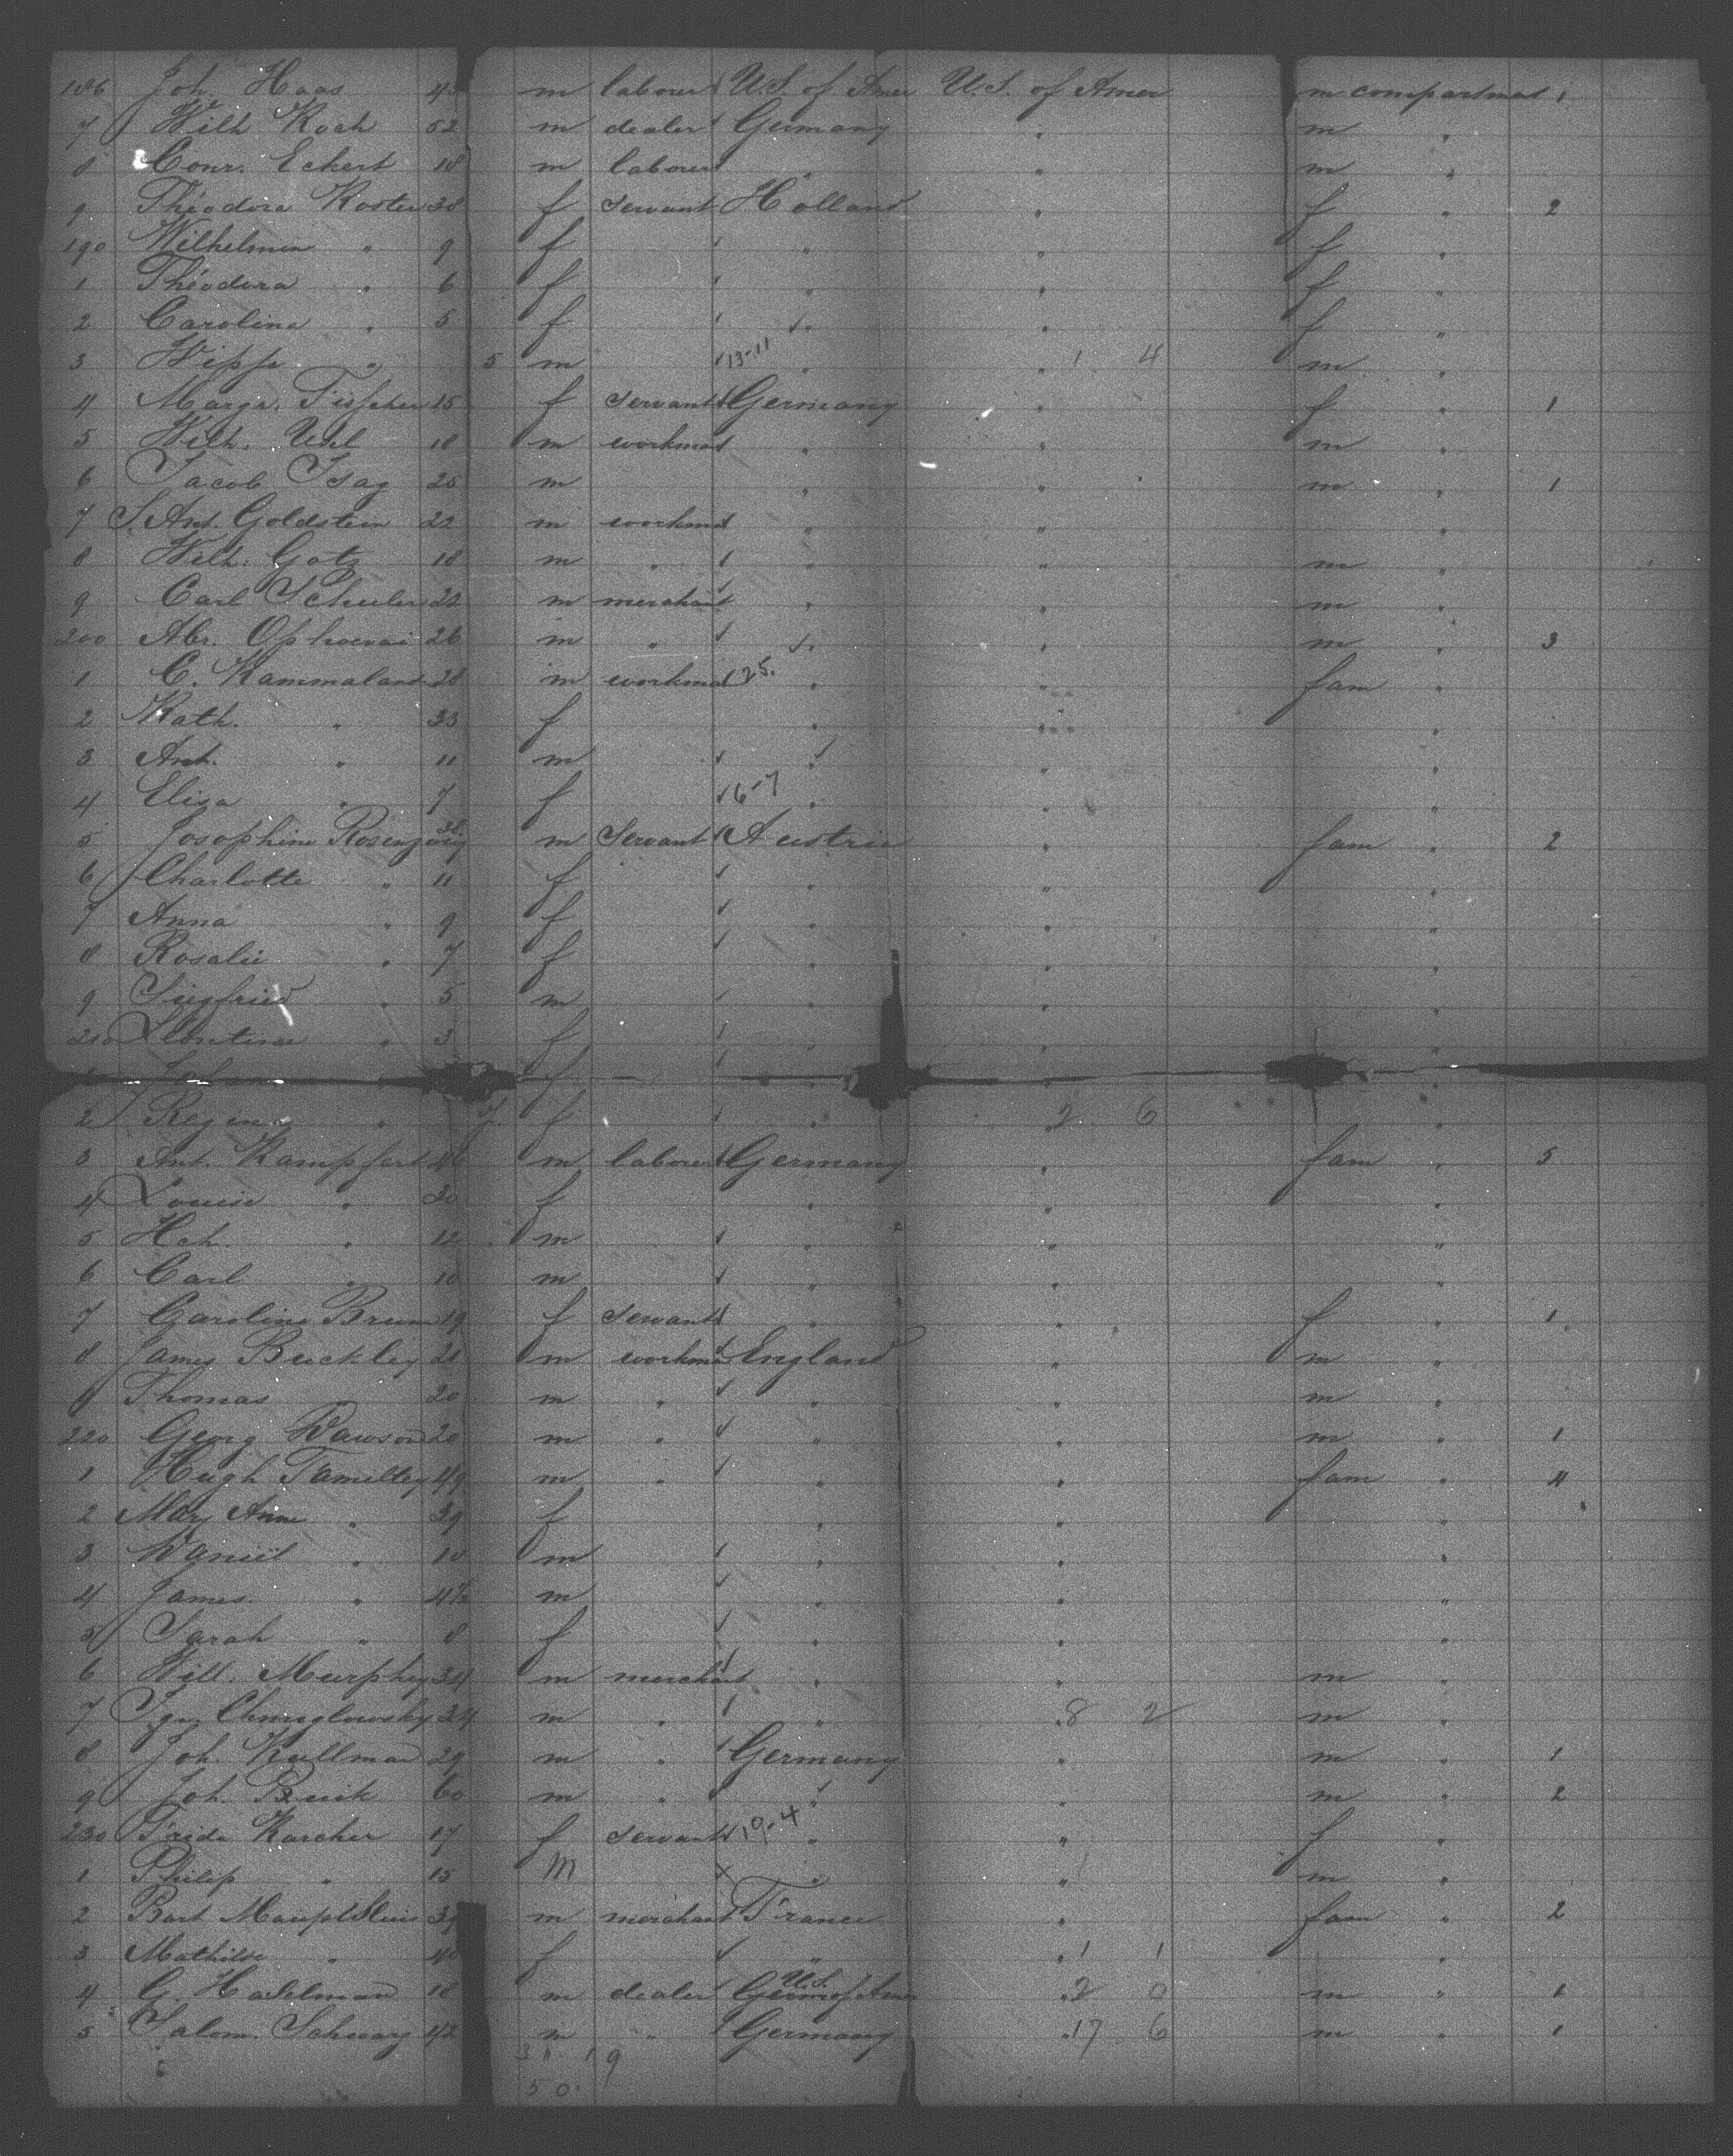 186 Joh. Haas 4 m laborer U.S. of Amer U.S. of Amer m compartmat 1
7 Wilh Koch 52 m dealer Germany " m "
8 Conr. Eckert 18 m laborer " " m "
9 Theodora Koster 38 f servant Holland " f " 2
190 Wilhelmin " 9 f " " f "
1 Theodora " 6 f " " f "
2 Carolina " 5 f " " f "
3 Wippe " 5 m 13-11 " " 1 4 m "
4 Margr. 15 f servant Germany " f " 1
5 Wilh. Uhl 18 m workma " " m "
6 Jacob Isay 25 m " " m " 1
7 S. Ant. Goldstein 22 m workma " " "
8 Wilh. Gotz 18 m " " " m "
9 Carl Schuler 22 m merchant " " m "
200 Abr. 26 m " " " m " 3
1 C. Kammaland 28 m workma 25. " " fam "
2 Kath. " 33 f " " "
3 Ant. " 11 m " "
4 Elisa " 7 f 6-7 " " "
5 Josophine Rosenzweig 38 m Servant Austria " fam " 2
6 Charlotte " 11 f " " "
7 Anna " 9 f " "
8 Rosalie " 7 f " " "
9 Siegfried " 5 m " " "
210 " 3 f " " "
f " "
2 Regina " f " 2 6 "
3 Ant. Kampfart 46 m laborer Germany " fam " 5
4 Louise " 30 f " " "
5 Hch. " 12 m " " "
6 Carl " 10 m " " "
7 Caroline Brum 19 f servant " " f " 1
8 James Buckley 28 m workma England " m "
9 Thomas 20 m " " " m "
220 Georg Dawson 20 m " " " m " 1
1 Hugh 49 m " " " fam " 4
2 Mary Anne " 39 f " " "
3 Daniel " 10 m " " "
4 James. " 4½ m " " "
5 Sarah " 8 f " " "
6 Will. Murphy 34 m merchant " " m "
7 24 m " " " 8 2 m "
8 Joh. Kullman 29 m " Germany " m " 1
9 Joh. 60 m " " " m " 2
230 Frida Karcher 17 f servant 19-4 " " f "
1 Philip " 15 m " " m "
2 Bart 39 m merchant France " fam " 2
3 Mathilde " 40 f " " 1 1 "
4 G. 18 m dealer U.S. of Amer " 2 0 m " 1
5 Salom. Schwarz 42 m " Germany " 17 6 m " 1
19
50